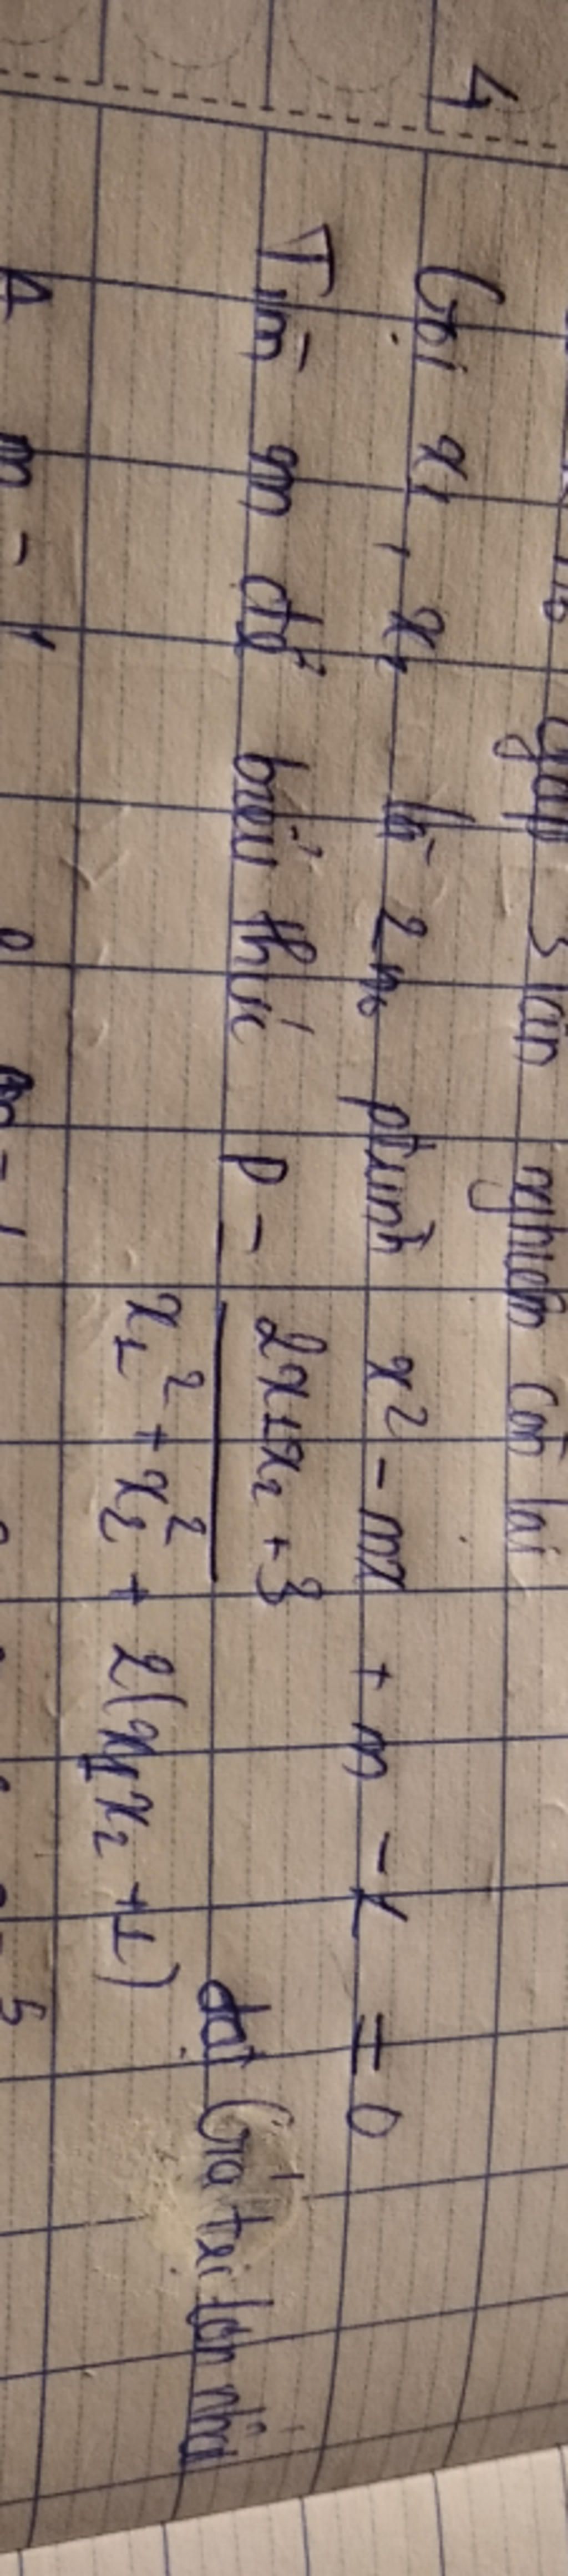 gấp 3 lần nghiệm còn lại
4
Gọi x₁, x₂ là 2 n₀ ptrình x² - mx + m - 1 = 0
Tìm m để biểu thức P = \frac{2x₁x₂ + 3}{x₁² + x₂² + 2(x₁x₂ + 1)} đạt Giá trị lớn nhất
A m = 1